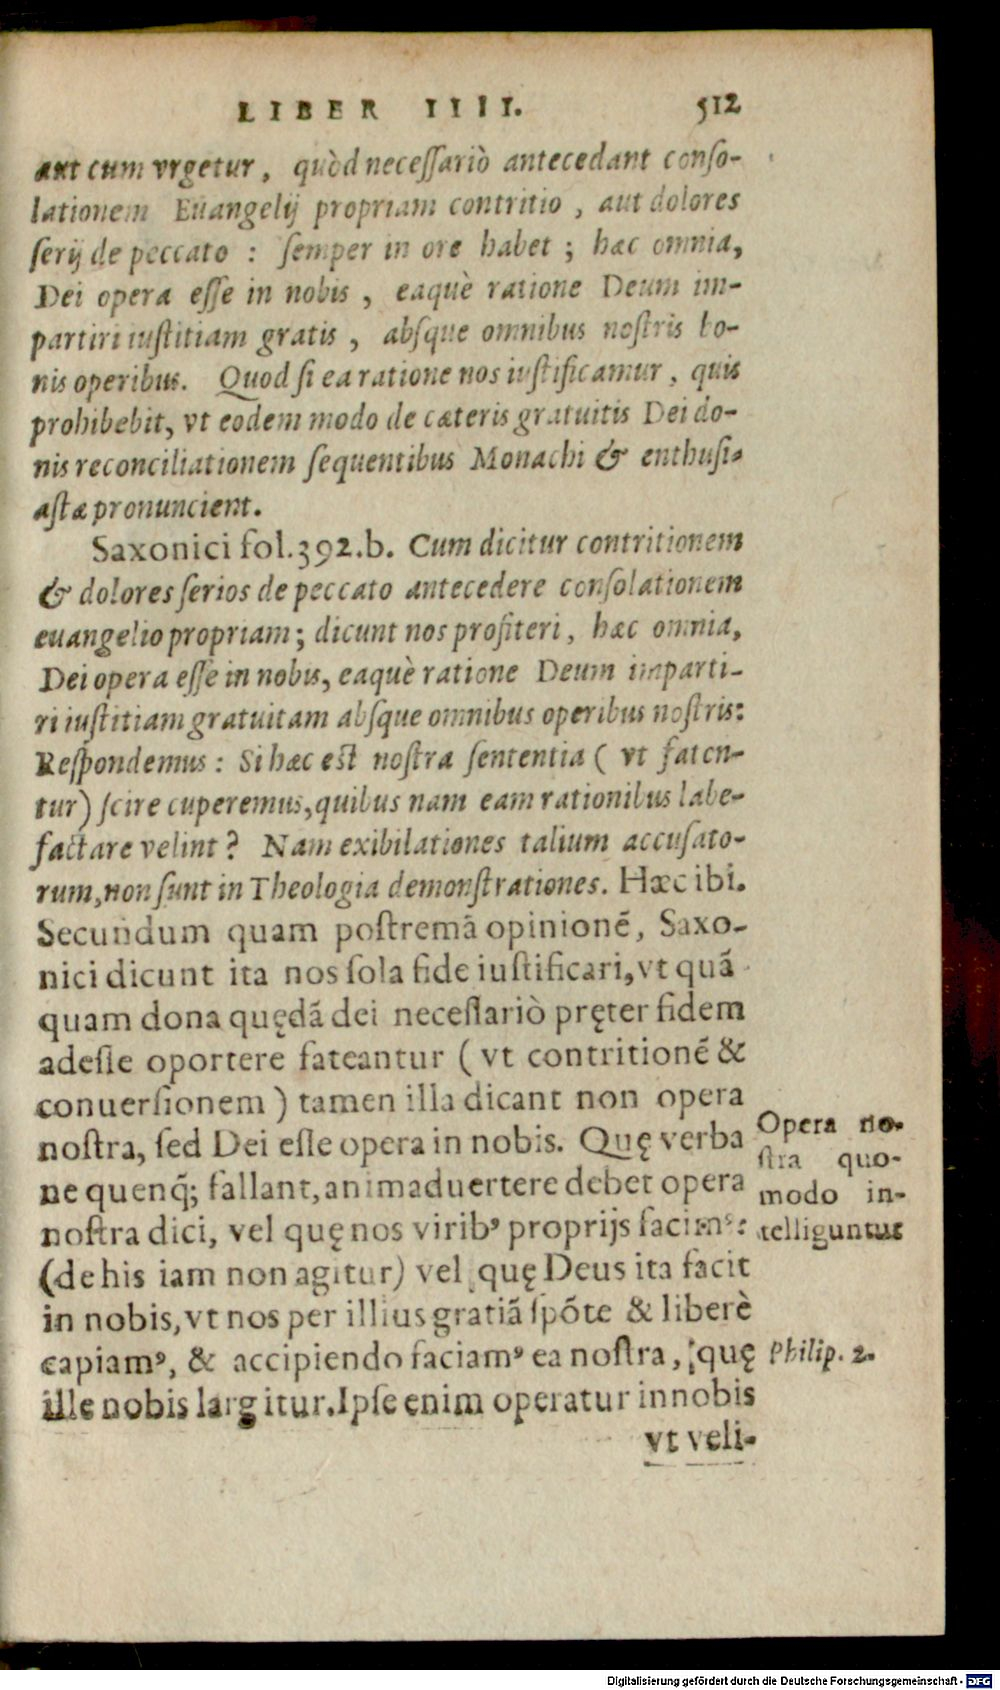 LIBER IIII. 512
aut cum vrgetur, quòd neceſſariò antecedant conſo-
lationem Euangelij propriam contritio, aut dolores
ſerij de peccato : ſemper in ore habet ; hæc omnia,
Dei opera eſſe in nobis, eaquè ratione Deum im-
partiri iuſtitiam gratis, abſque omnibus noſtris bo-
nis operibus. Quod ſi ea ratione nos iuſtificamur, quis
prohibebit, vt eodem modo de cæteris gratuitis Dei do-
nis reconciliationem ſequentibus Monachi & enthuſi-
aſtæ pronuncient.
Saxonici fol.392.b. Cum dicitur contritionem
& dolores ſerios de peccato antecedere conſolationem
euangelio propriam; dicunt nos profiteri, hæc omnia,
Dei opera eſſe in nobis, eaquè ratione Deum imparti-
ri iuſtitiam gratuitam abſque omnibus operibus noſtris:
Reſpondemus: Si hæc eſt noſtra ſententia ( vt faten-
tur) ſcire cuperemus, quibus nam eam rationibus labe-
factare velint? Nam exibilationes talium accuſato-
rum, non ſunt in Theologia demonſtrationes. Hæc ibi.
Secundum quam poſtremā opinionē, Saxo-
nici dicunt ita nos ſola fide iuſtificari, vt quā
quam dona quędā dei neceſſariò pręter fidem
adeſſe oportere fateantur ( vt contritionē &
conuerſionem ) tamen illa dicant non opera
noſtra, ſed Dei eſſe opera in nobis. Quę verba
ne quenq́; fallant, animaduertere debet opera
noſtra dici, vel quę nos viribꝰ proprijs facimꝰ:
(de his iam non agitur) vel quę Deus ita facit
in nobis, vt nos per illius gratiā ſpōte & liberè
capiamꝰ, & accipiendo faciamꝰ ea noſtra, quę
ille nobis largitur. Ipſe enim operatur in nobis
vt veli-
Opera no-
ſtra quo-
modo in-
telliguntur
Philip. 2.
Digitalisierung gefördert durch die Deutsche Forschungsgemeinschaft - DFG